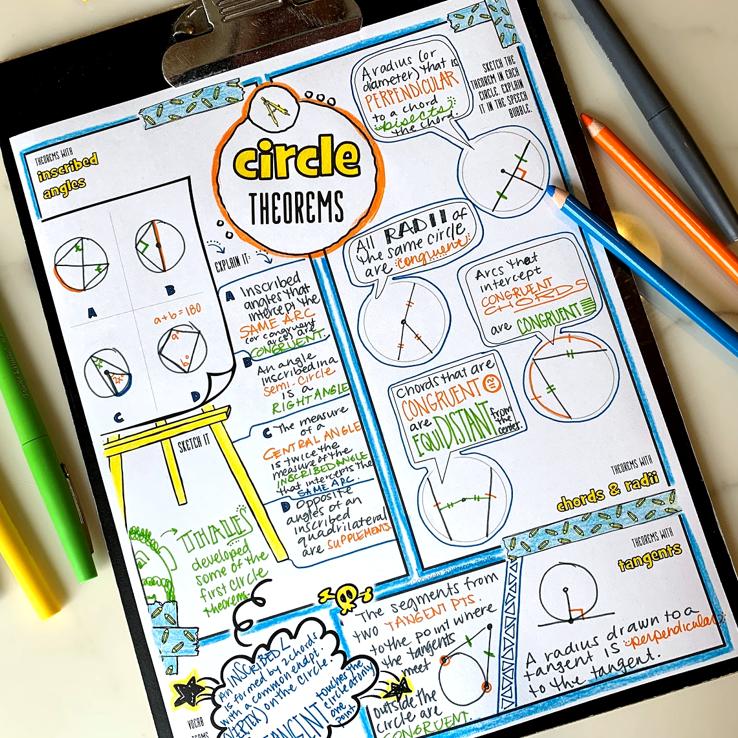 circle
THEOREMS
THEOREMS WITH
inscribed
angles
A
B
a+b=180
a
b
2x
C
D
EXPLAIN IT:
A Inscribed
angles that
intercept the
SAME ARC
(or congruent
arcs) are
CONGRUENT.
B An angle
inscribed in a
semi-circle
is a
RIGHT ANGLE
C The measure
of a
CENTRAL ANGLE
is twice the
measure of the
INSCRIBED ANGLE
that intercepts the
SAME ARC.
D Opposite
angles of an
inscribed
quadrilateral
are SUPPLEMENTS
SKETCH IT
THALES
developed
some of the
first circle
theorems
A radius (or
diameter) that is
PERPENDICULAR
to a chord
bisects
the chord.
SKETCH THE
THEOREM IN EACH
CIRCLE. EXPLAIN
IT IN THE SPEECH
BUBBLE.
All RADII of
the same circle
are congruent
Arcs that
intercept
CONGRUENT
CHORDS
are CONGRUENT
Chords that are
CONGRUENT
are
EQUIDISTANT from
the
center.
THEOREMS WITH
chords & radii
THEOREMS WITH
tangents
The segments from
two TANGENT PTS.
to the point where
the tangents
meet
outside the
circle are
CONGRUENT.
A radius drawn to a
tangent is perpendicular
to the tangent.
An INSCRIBED ∠
is formed by 2 chords
with a common endpt
(VERTEX) on the circle.
TANGENT touches the
circle at only
one
point.
VOCAB